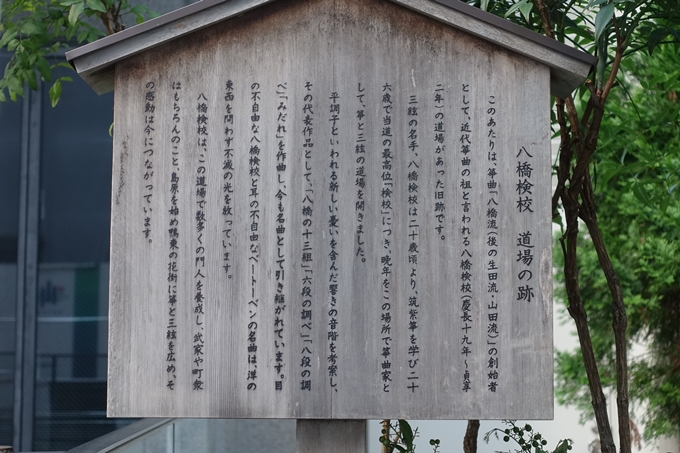 八橋検校　道場の跡
このあたりは、箏曲「八橋流(後の生田流・山田流)」の創始者
として、近代箏曲の祖と言われる八橋検校(慶長十九年〜貞享
二年)の道場があった旧跡です。
三絃の名手、八橋検校は二十歳頃より、筑紫箏を学び二十
六歳で当道の最高位「検校」につき、晩年をこの場所で箏曲家と
して、箏と三絃の道場を開きました。
平調子といわれる新しい憂いを含んだ響きの音階を考案し、
その代表作品として、「八橋の十三組」「六段の調べ」「八段の調
べ」「みだれ」を作曲し、今も名曲として引き継がれています。目
の不自由な八橋検校と耳の不自由なベートーベンの名曲は、洋の
東西を問わず不滅の光を放っています。
八橋検校は、この道場で数多くの門人を養成し、武家や町衆
はもちろんのこと、島原を始め鴨東の花街に箏と三絃を広め、そ
の感動は今につながっています。